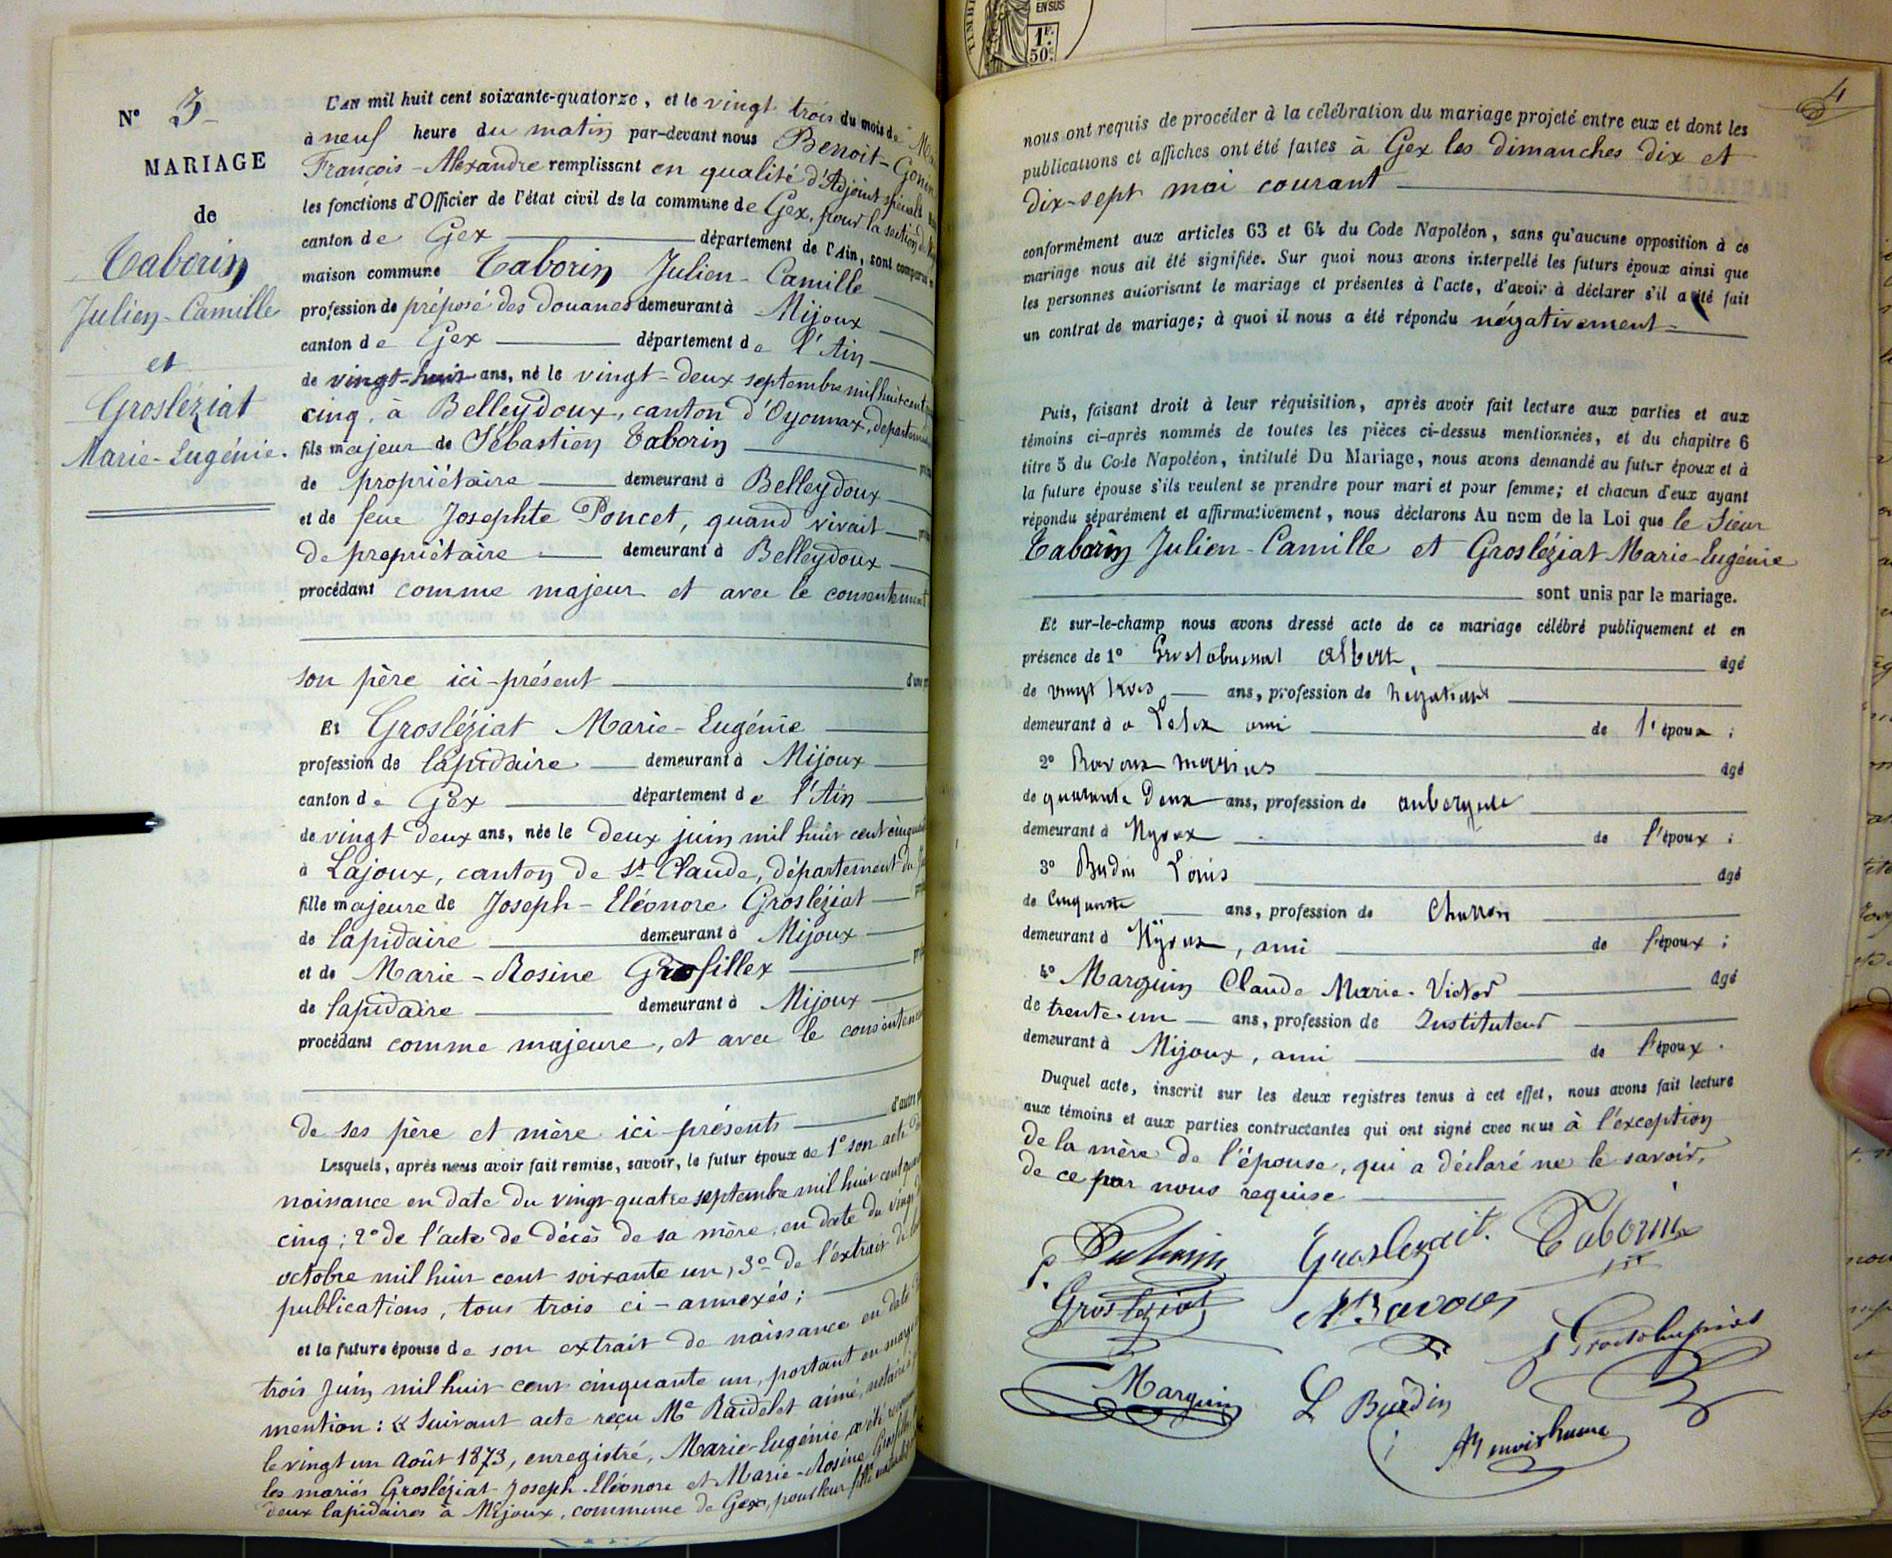 TIMB
EN SUS
1F.
50c
N° 3
MARIAGE
de
Taborin
Julien-Camille
et
Grosléziat
Marie-Eugénie.
L'AN mil huit cent soixante-quatorze, et le vingt trois du mois de
à neuf heure du matin par-devant nous Benoit-Gonin
François-Alexandre remplissant en qualité d'Adjoint spécial
les fonctions d'Officier de l'état civil de la commune de Gex, pour la section de
canton de Gex département de l'Ain, sont comparus
maison commune Taborin Julien-Camille
profession de préposé des douanes demeurant à Mijoux
canton de Gex département de l'Ain
de vingt-huit ans, né le vingt-deux septembre mil huit cent
cinq, à Belleydoux, canton d'Oyonnax, département
fils majeur de Sébastien Taborin
de propriétaire demeurant à Belleydoux
et de feue Josephte Poncet, quand vivait
de propriétaire demeurant à Belleydoux
procédant comme majeur et avec le consentement
son père ici-présent
Et Grosléziat Marie-Eugénie
profession de lapidaire demeurant à Mijoux
canton de Gex département de l'Ain
de vingt deux ans, née le deux juin mil huit cent
à Lajoux, canton de St Claude, département du
fille majeure de Joseph-Eléonore Grosléziat
de lapidaire demeurant à Mijoux
et de Marie-Rosine Grosfillex
de lapidaire demeurant à Mijoux
procédant comme majeure, et avec le
de ses père et mère ici présents
Lesquels, après nous avoir fait remise, savoir, le futur époux de 1° son acte de
naissance en date du vingt quatre septembre mil huit cent
cinq; 2° de l'acte de décès de sa mère, en date du vingt
octobre mil huit cent soixante un, 3° de l'extrait de
publications, tous trois ci-annexés;
et la future épouse de son extrait de naissance en date
trois Juin mil huit cent cinquante un, portant en marge
mention: « Suivant acte reçu Me Raidelet aimé, notaire à
le vingt un Août 1873, enregistré, Marie-Eugénie a été
les mariés Grosléziat Joseph Eléonore et Marie-Rosine
deux lapidaires à Mijoux, commune de Gex, pour leur fille
4
nous ont requis de procéder à la célébration du mariage projeté entre eux et dont les
publications et affiches ont été faites à Gex les dimanches dix et
dix-sept mai courant
conformément aux articles 63 et 64 du Code Napoléon, sans qu'aucune opposition à ce
mariage nous ait été signifiée. Sur quoi nous avons interpellé les futurs époux ainsi que
les personnes autorisant le mariage et présentes à l'acte, d'avoir à déclarer s'il a été fait
un contrat de mariage; à quoi il nous a été répondu négativement
Puis, faisant droit à leur réquisition, après avoir fait lecture aux parties et aux
témoins ci-après nommés de toutes les pièces ci-dessus mentionnées, et du chapitre 6
titre 5 du Code Napoléon, intitulé Du Mariage, nous avons demandé au futur époux et à
la future épouse s'ils veulent se prendre pour mari et pour femme; et chacun d'eux ayant
répondu séparément et affirmativement, nous déclarons Au nom de la Loi que le Sieur
Taborin Julien-Camille et Grosléziat Marie-Eugénie
sont unis par le mariage.
Et sur-le-champ nous avons dressé acte de ce mariage célébré publiquement et en
présence de 1° Albert, âgé
de vingt trois ans, profession de négociant
demeurant à ami de l'époux;
2° Marius âgé
de quarante deux ans, profession de aubergiste
demeurant à de l'époux;
3° Burdin Louis âgé
de cinquante ans, profession de Charron
demeurant à, ami de l'époux;
4° Marquin Claude Marie-Victor âgé
de trente-un ans, profession de Instituteur
demeurant à Mijoux, ami de l'époux.
Duquel acte, inscrit sur les deux registres tenus à cet effet, nous avons fait lecture
aux témoins et aux parties contractantes qui ont signé avec nous à l'exception
de la mère de l'épouse, qui a déclaré ne le savoir,
de ce par nous requise
Taborin
Grosléziat
Marquin
L Burdin